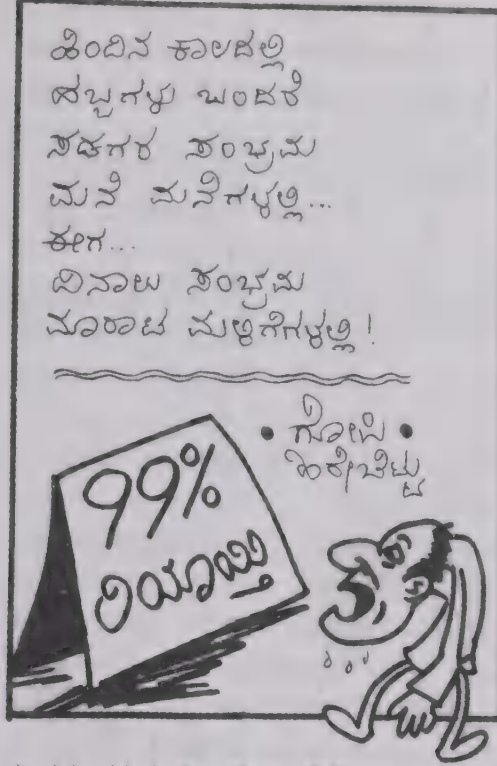 ಹಿಂದಿನ ಕಾಲದಲ್ಲಿ
ಹಬ್ಬಗಳು ಬಂದರೆ
ಸಡಗರ ಸಂಭ್ರಮ
ಮನೆ ಮನೆಗಳಲ್ಲಿ...
ಈಗ...
ದಿನಾಲು ಸಂಭ್ರಮ
ಮಾರಾಟ ಮಳಿಗೆಗಳಲ್ಲಿ!
• ಗೋಪಿ •
ಹಿರೇಬೆಟ್ಟು
99%
ರಿಯಾಯ್ತಿ